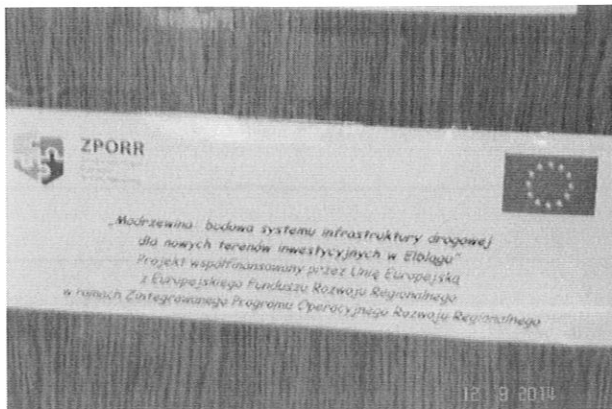 ZPORR
„Modrzewina: budowa systemu infrastruktury drogowej
dla nowych terenów inwestycyjnych w Elblągu"
Projekt współfinansowany przez Unię Europejską
z Europejskiego Funduszu Rozwoju Regionalnego
w ramach Zintegrowanego Programu Operacyjnego Rozwoju Regionalnego
12 9 2014